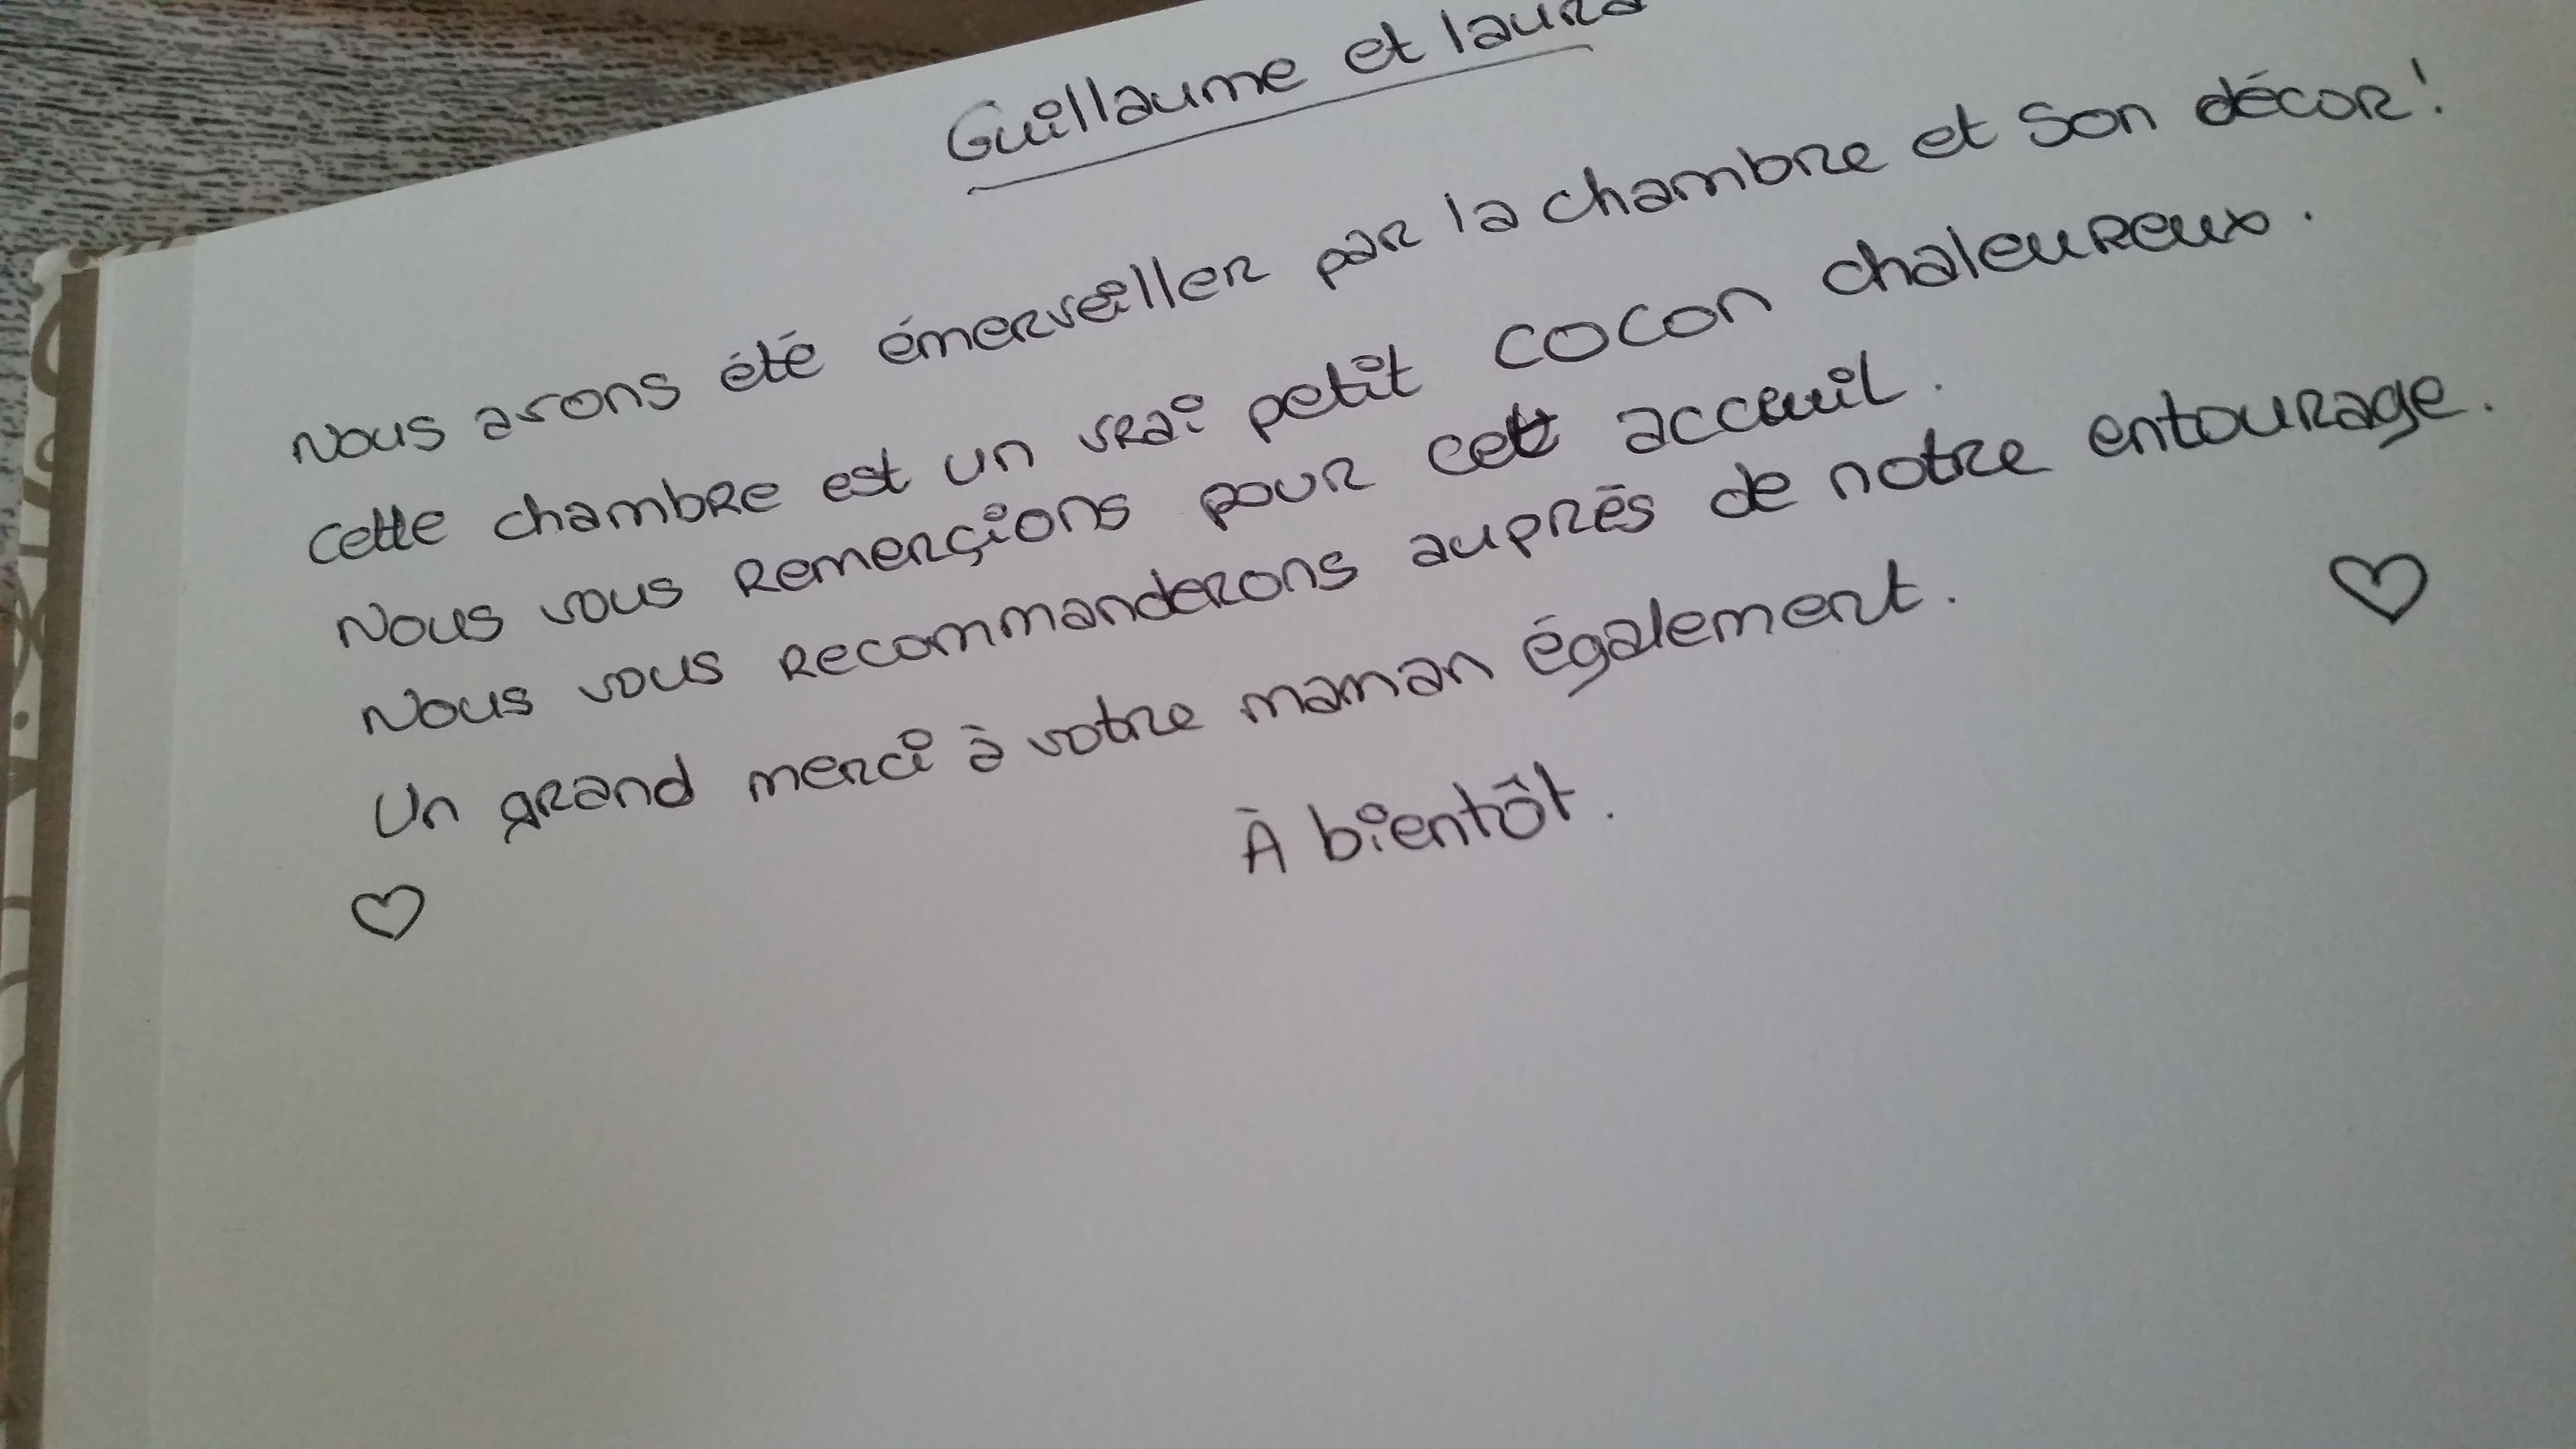 Guillaume et laura
Nous avons été émerveiller par la chambre et son décor!
cette chambre est un vrai petit cocon chaleureux.
Nous vous remerçions pour cett acceuil.
Nous vous recommanderons auprès de notre entourage.
Un grand merci à votre maman également.
À bientôt.